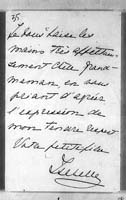 Je vous baise les
mains très affectueu-
sement Chère Grand-
maman en vous
priant d'agréer
l'expression de
mon tendre respect
Votre petite fille